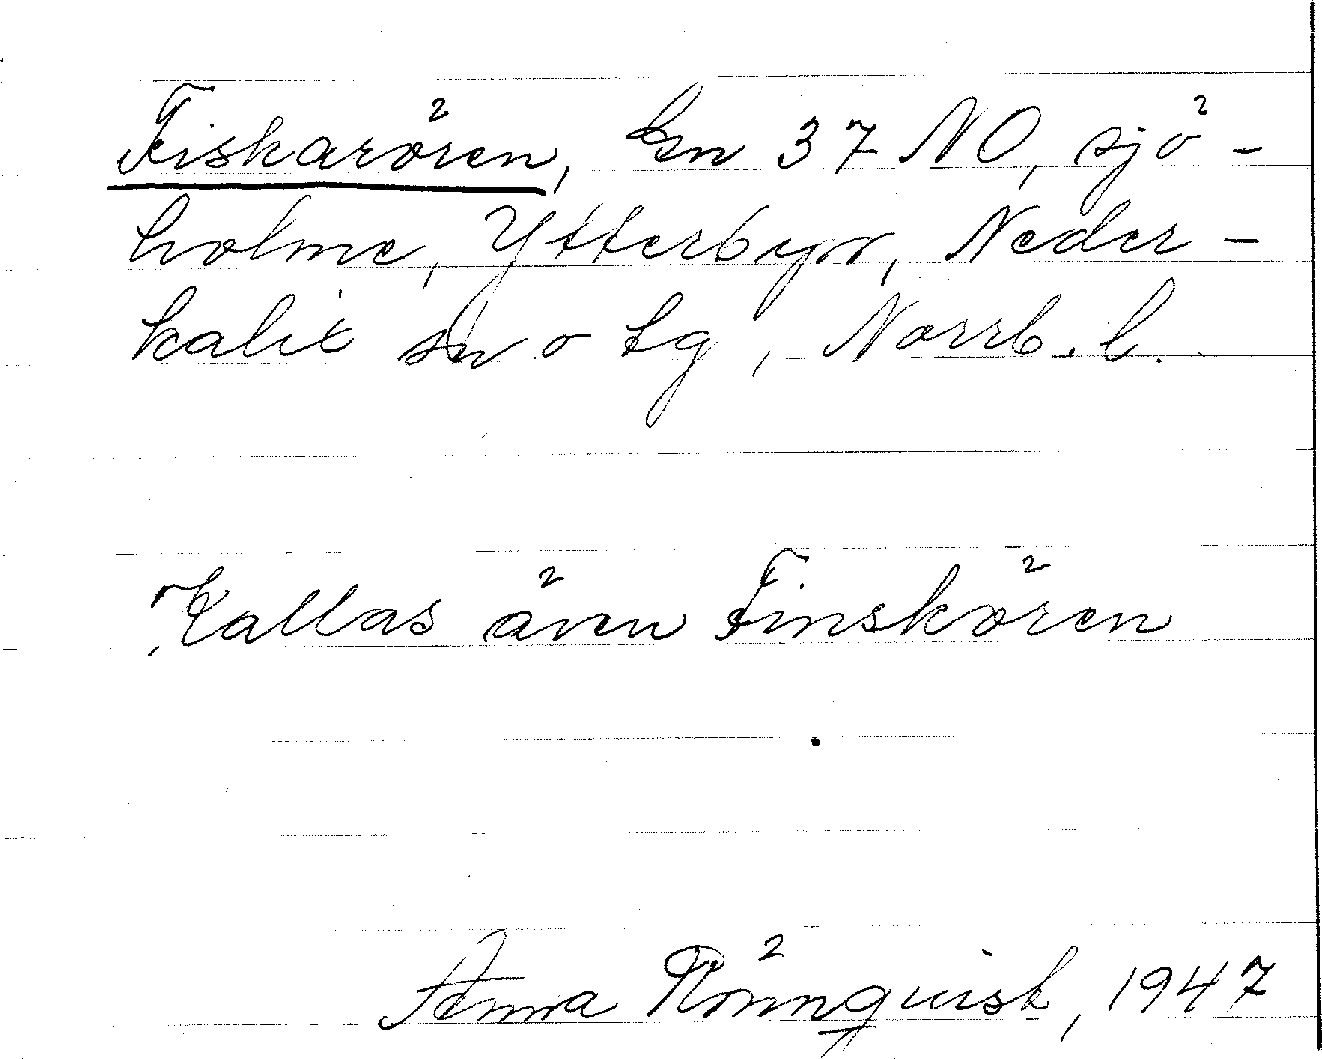 Fiskarören, Gn 37 NO, sjö-
holme, Ytterbyn, Neder-
kalix sn o tg, Norrb. l.
Kallas även Finskören
Anna Rönnqvist, 1947